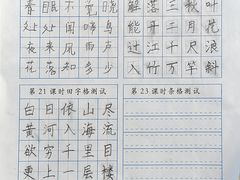 春眠不觉晓
处处闻啼鸟
夜来风雨声
花落知多少
解落三秋叶
能开二月花
过江千尺浪
入竹万竿斜
第21课时田字格测试
白日依山尽
黄河入海流
欲穷千里目
更上一层楼
第23课时条格测试